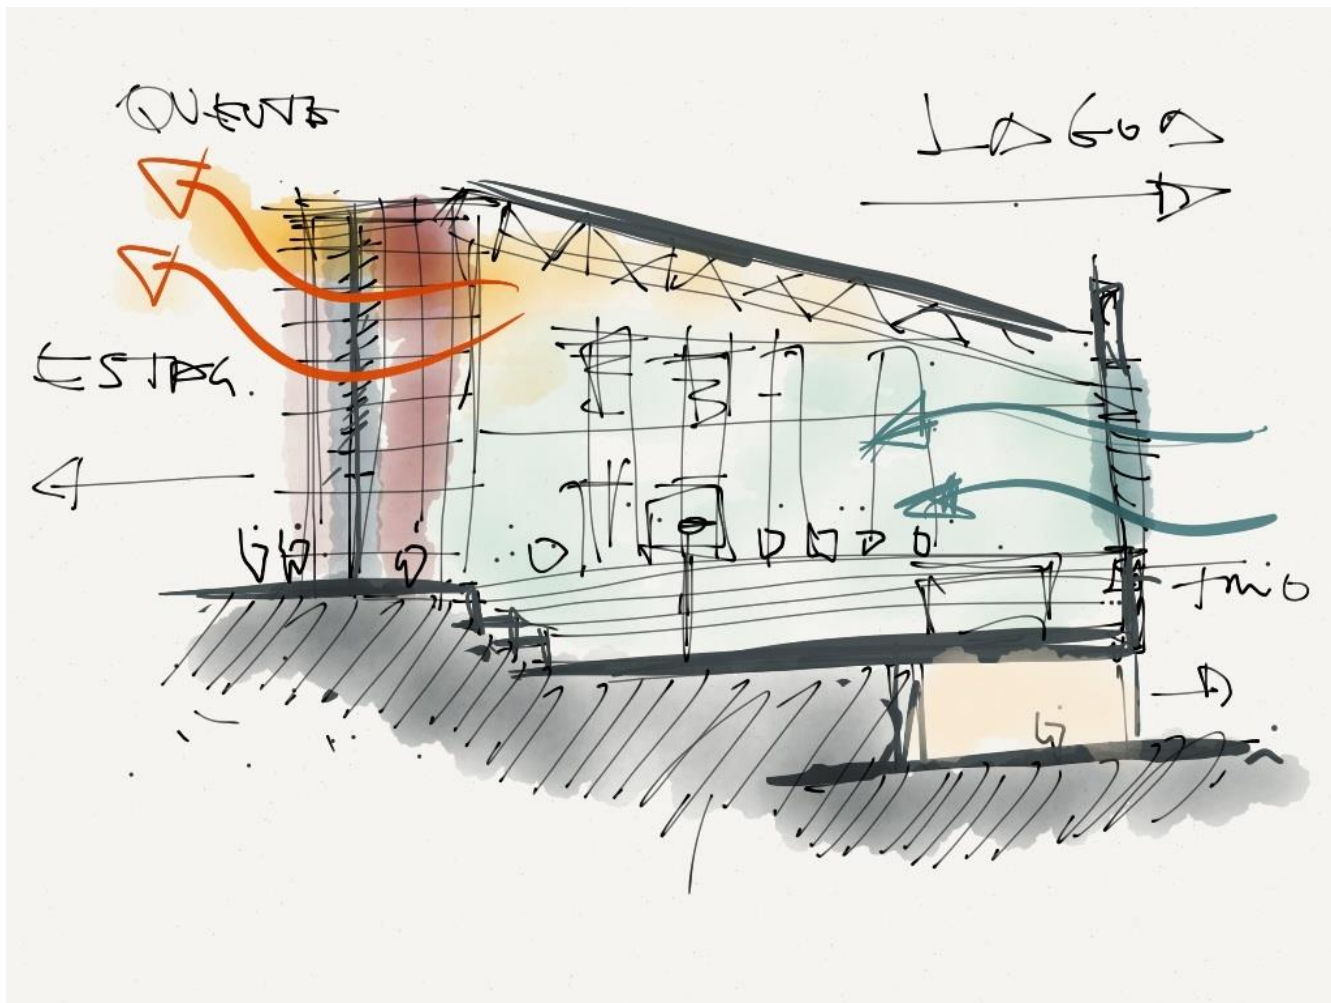 QUENTE
LAGOA
ESTAC.
FRIO